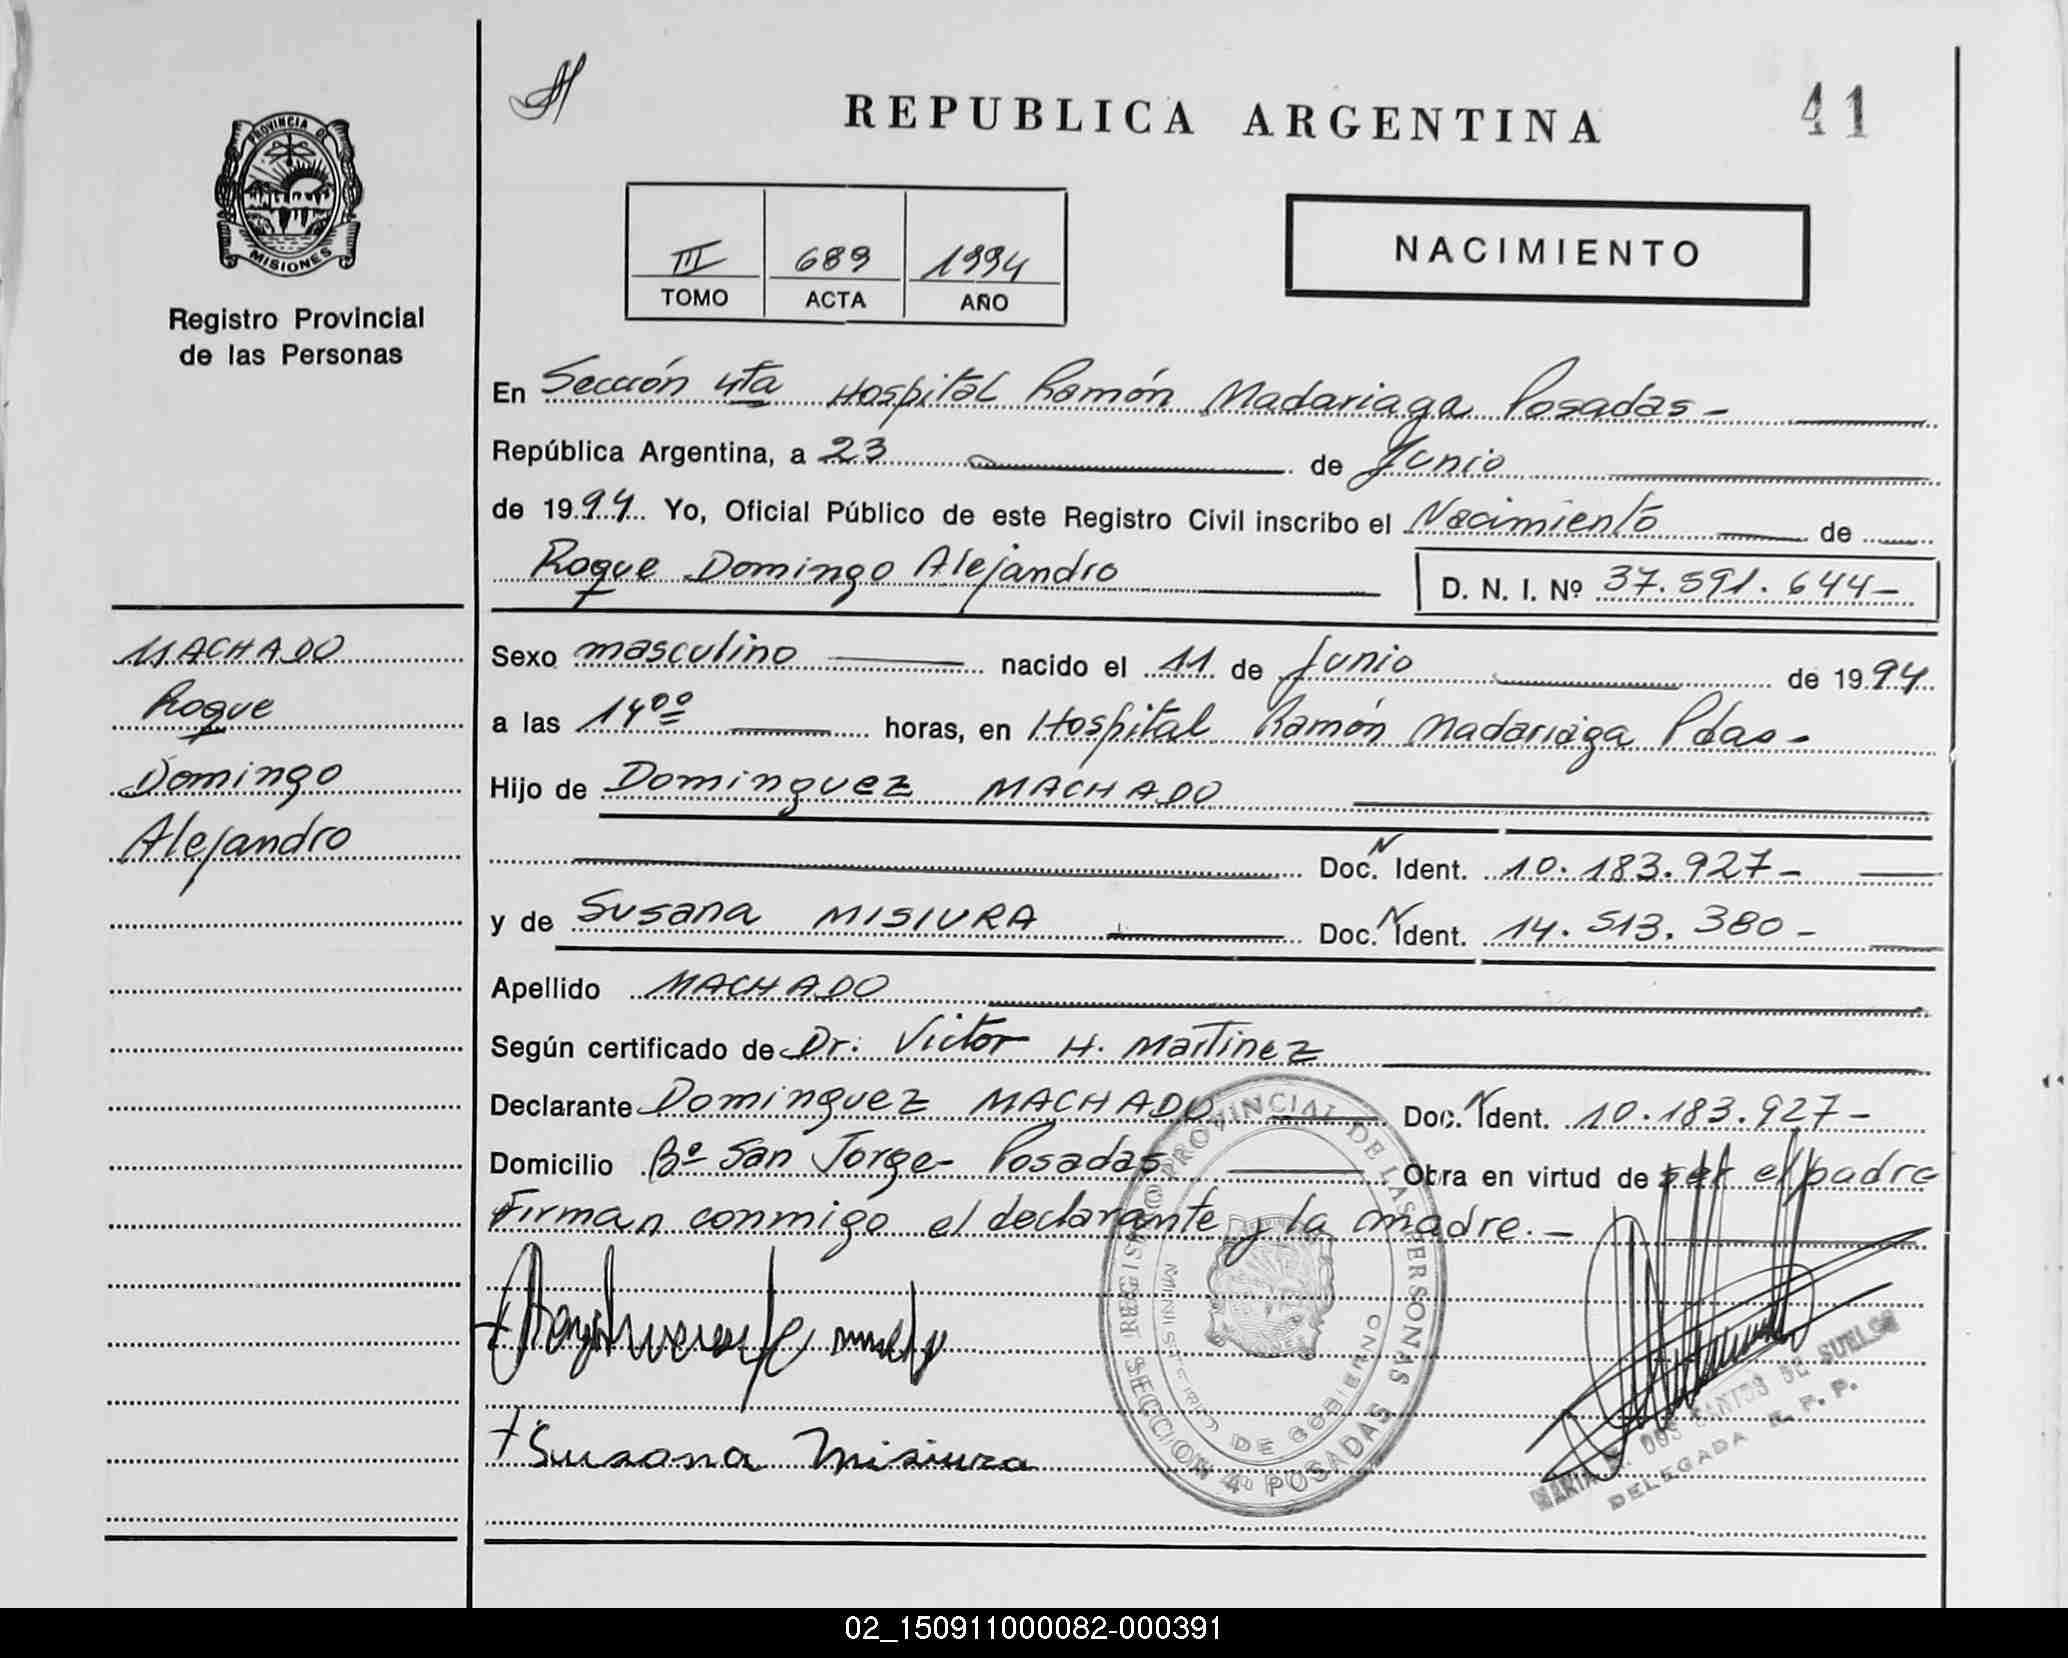 REPUBLICA ARGENTINA
41
PROVINCIA DE
MISIONES
Registro Provincial
de las Personas
III 689 1994
TOMO ACTA AÑO
NACIMIENTO
En Sección 4ta Hospital Ramón Madariaga Posadas-
República Argentina, a 23 de Junio
de 1994 Yo, Oficial Público de este Registro Civil inscribo el Nacimiento de
Roque Domingo Alejandro D. N. I. Nº 37.591.644-
MACHADO
Roque
Domingo
Alejandro
Sexo masculino nacido el 11 de Junio de 1994
a las 14⁰⁰ horas, en Hospital Ramón Madariaga Pdas-
Hijo de Dominguez MACHADO
Doc. N Ident. 10.183.927-
y de Susana MISIURA Doc. N Ident. 14.513.380-
Apellido MACHADO
Según certificado de Dr. Victor H. Martinez
Declarante Dominguez MACHADO Doc. N Ident. 10.183.927-
Domicilio Bº San Jorge- Posadas Obra en virtud de ser el padre
Firman conmigo el declarante y la madre.-
REGISTRO PROVINCIAL DE LAS PERSONAS
MINISTERIO DE GOBIERNO
SECCION 4º POSADAS
Susana Misiura
MARIA DOS SANTOS DE
DELEGADA R. P. P.
02_150911000082-000391